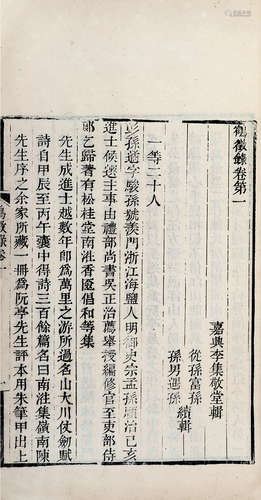 鶴徵錄卷第一
嘉興李集敬堂輯
從孫富孫
孫男遇孫續輯
一等二十人
彭孫遹字駿孫號羨門浙江海鹽人明御史宗孟孫順治己亥
進士候選主事由禮部尚書吳正治薦舉授編修官至吏部侍
郎乞歸著有松桂堂南淮香奩倡和等集
先生成進士越數年卽為萬里之游所過名山大川仗劒賦
詩自甲辰至丙午囊中得詩三百餘篇名曰南淮集嶺南陳
先生序之余家所藏一冊為阮亭先生評本用朱筆甲出上
鶴徵錄卷一